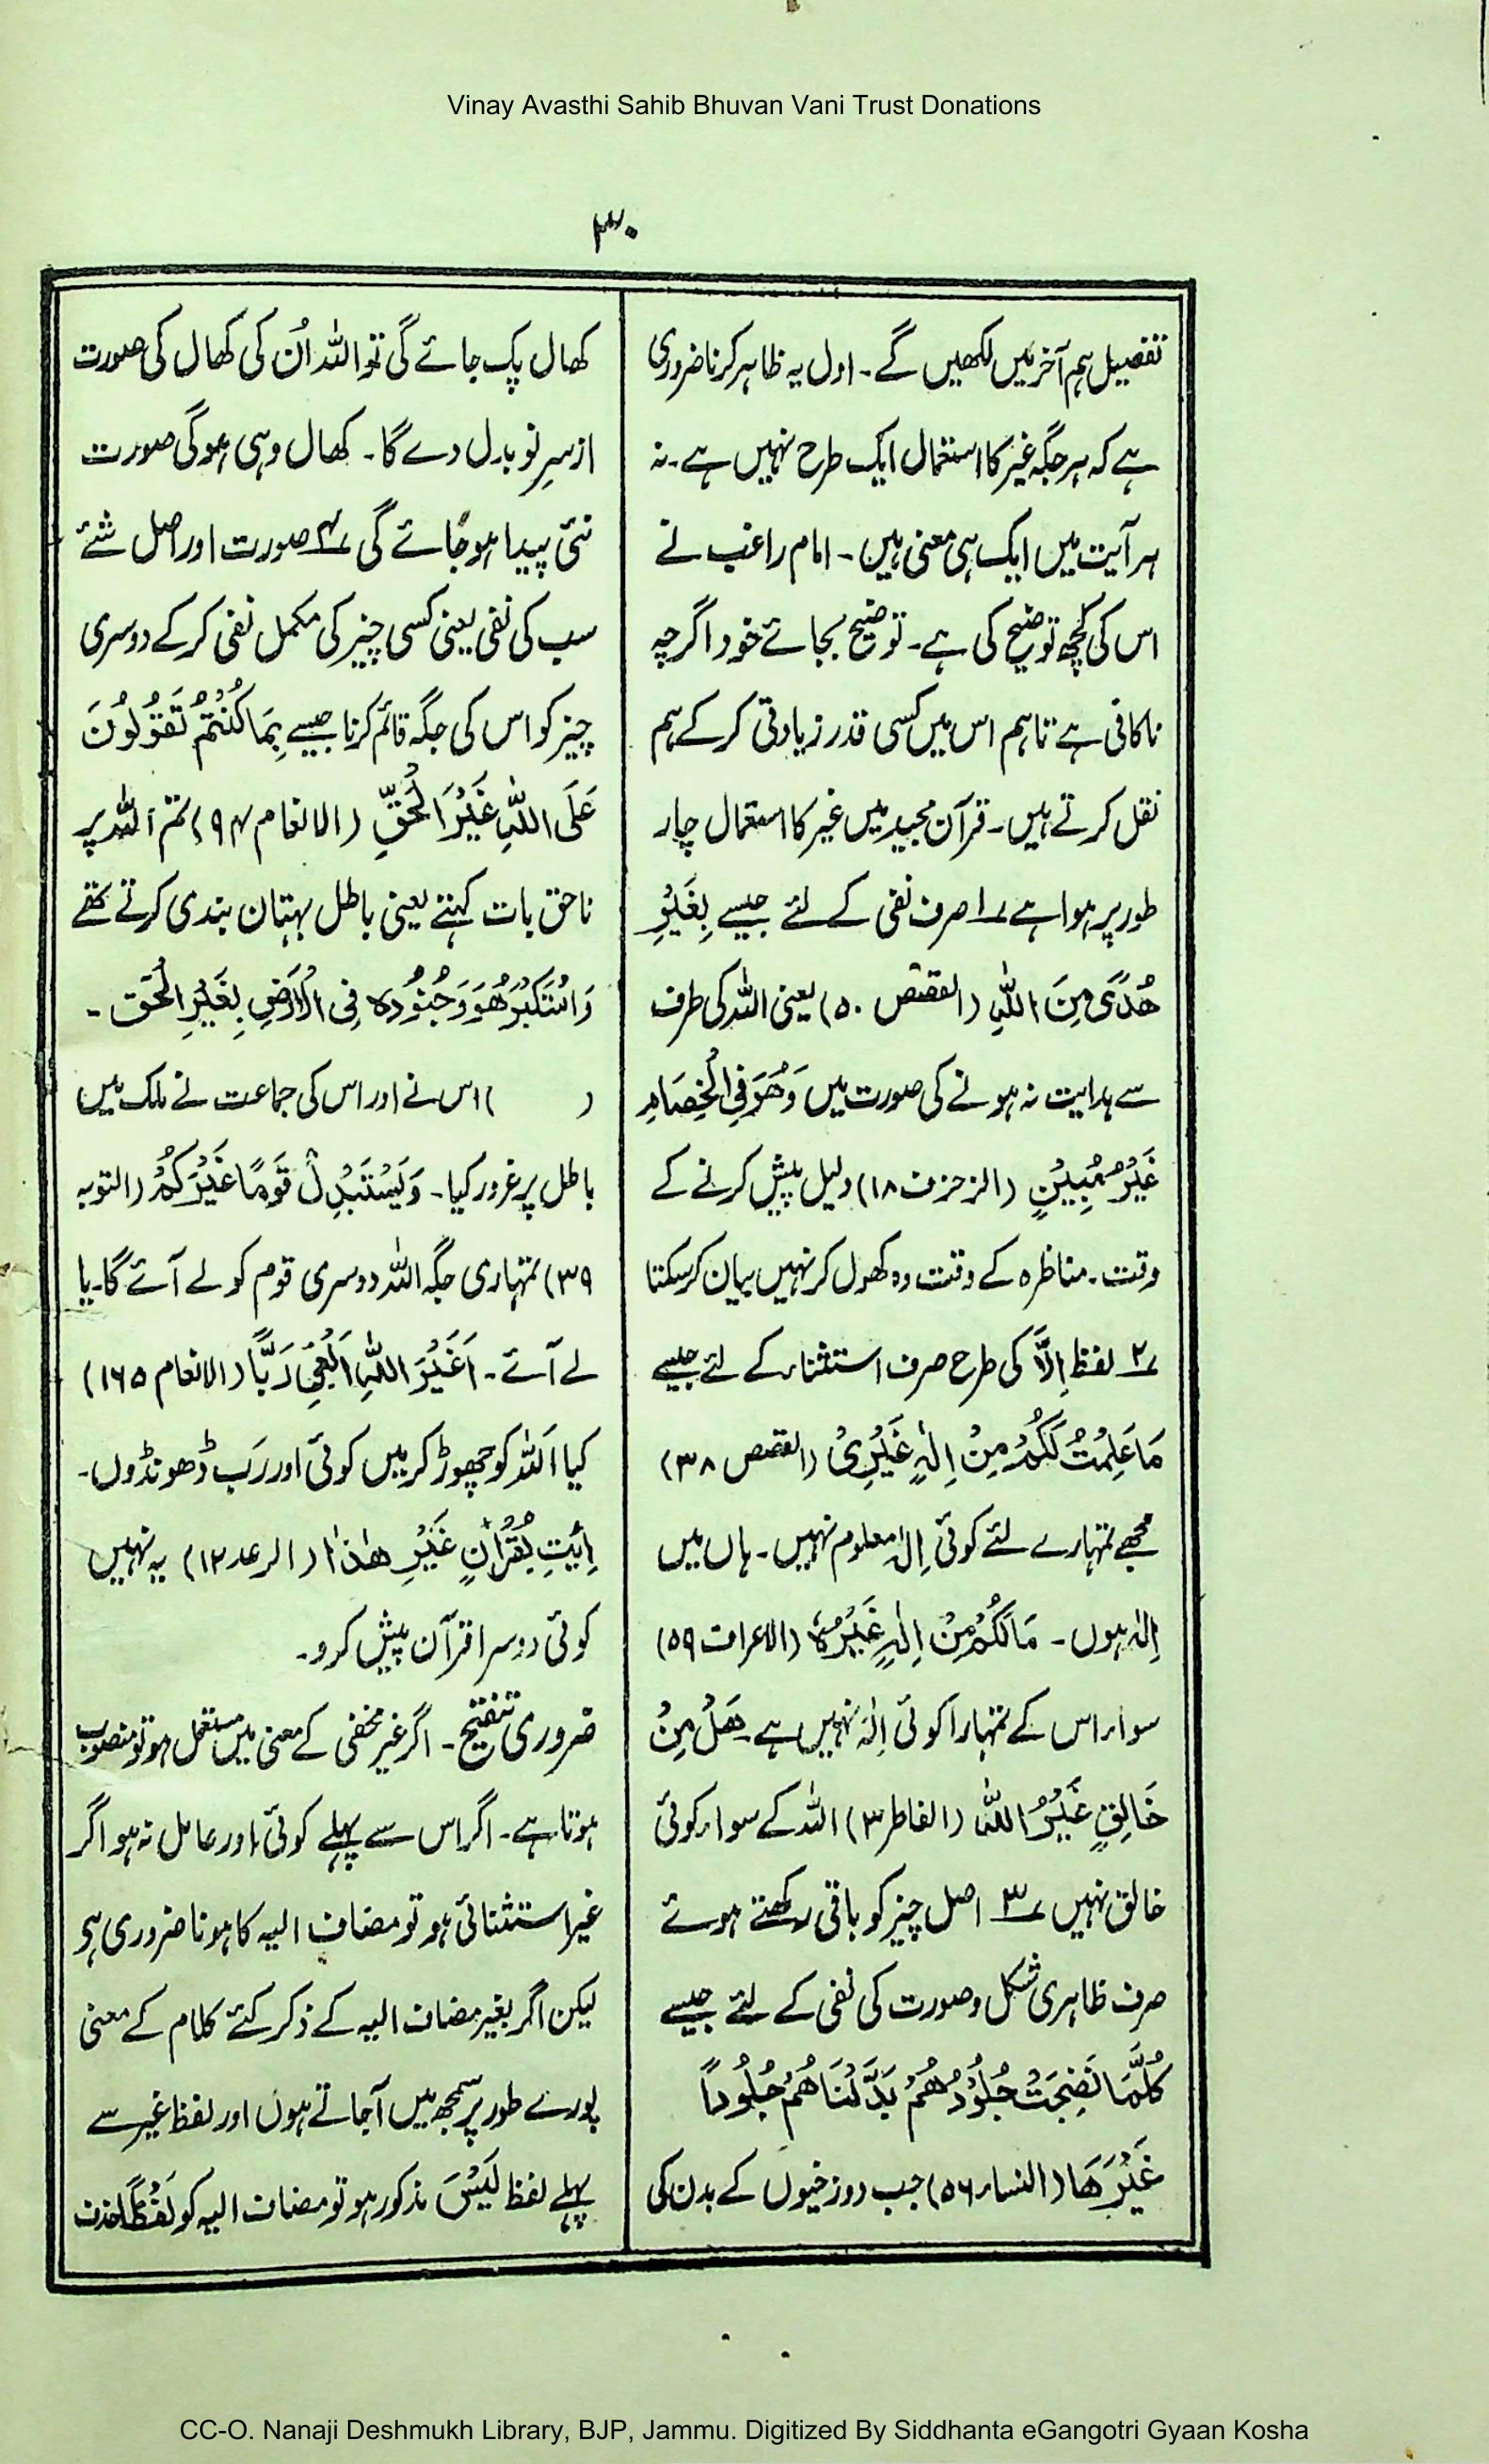 Vinay Avasthi Sahib Bhuvan Vani Trust Donations
۳۰
تفصیل ہم آخر میں لکھیں گے۔ اول یہ ظاہر کرنا ضروری
ہے کہ ہر جگہ غیر کا استعمال ایک طرح نہیں ہے۔ نہ
ہر آیت میں ایک ہی معنی ہیں۔ امام راغب نے
اس کی کچھ توضیح کی ہے۔ توضیح بجائے خود اگرچہ
ناکافی ہے تاہم اس میں کسی قدر زیادتی کر کے ہم
نقل کرتے ہیں۔ قرآن مجید میں غیر کا استعمال چار
طور پر ہوا ہے ۱؎ صرف نفی کے لئے جیسے بِغَیْرِ
ھُدًی مِنَ اللّٰہِ (القصص ۵۰) یعنی اللہ کی طرف
سے ہدایت نہ ہونے کی صورت میں وَھُوَ فِی الْخِصَامِ
غَیْرُ مُبِیْنٍ (الزخرف ۱۸) دلیل پیش کرنے کے
وقت۔ مناظرہ کے وقت وہ کھول کر نہیں بیان کرسکتا
۲؎ لفظ اِلَّا کی طرح صرف استثناء کے لئے جیسے
مَا عَلِمْتُ لَکُمْ مِنْ اِلٰہٍ غَیْرِیْ (القصص ۳۸)
مجھے تمہارے لئے کوئی اِلٰہ معلوم نہیں۔ ہاں میں
اِلٰہ ہوں۔ مَالَکُمْ مِنْ اِلٰہٍ غَیْرُہٗ (الاعراف ۵۹)
سواء اس کے تمہارا کوئی اِلٰہ نہیں ہے۔ ھَلْ مِنْ
خَالِقٍ غَیْرُ اللّٰہِ (الفاطر ۳) اللہ کے سواء کوئی
خالق نہیں ۳؎ اصل چیز کو باقی رکھتے ہوئے
صرف ظاہری شکل و صورت کی نفی کے لئے جیسے
کُلَّمَا نَضِجَتْ جُلُوْدُھُمْ بَدَّلْنَاھُمْ جُلُوْداً
غَیْرَھَا (النساء ۵۶) جب دوزخیوں کے بدن کی
کھال پک جائے گی تو اللہ اُن کی کھال کی صورت
ازسرِنو بدل دے گا۔ کھال وہی ہوگی صورت
نئی پیدا ہوجائے گی ۴؎ صورت اور اصل شئے
سب کی نفی یعنی کسی چیز کی مکمل نفی کرکے دوسری
چیز کو اس کی جگہ قائم کرنا جیسے بِمَا کُنْتُمْ تَقُوْلُوْنَ
عَلَی اللّٰہِ غَیْرَ الْحَقِّ (الانعام ۹۴) تم اللہ پر
ناحق بات کہتے یعنی باطل بہتان بندی کرتے تھے
وَاسْتَکْبَرَ ھُوَ وَجُنُوْدُہ فِی الْاَرْضِ بِغَیْرِ الْحَق۔
( ) اس نے اور اس کی جماعت نے ملک میں
باطل پر غرور کیا۔ وَیَسْتَبْدِلْ قَوْمًا غَیْرَکُمْ (التوبہ
۳۹) تمہاری جگہ اللہ دوسری قوم کو لے آئے گا۔ یا
لے آئے۔ اَغَیْرَ اللّٰہِ اَبْغِیْ رَبًّا (الانعام ۱۶۵)
کیا اللہ کو چھوڑ کر میں کوئی اور رَب ڈھونڈوں۔
اِئْتِ بِقُرْاٰنٍ غَیْرِ ھٰذَا (الرعد ۱۲) یہ نہیں
کوئی دوسرا قرآن پیش کرو۔
ضروری تنقیح۔ اگر غیر مخفی کے معنی میں مستعمل ہو تو منصوب
ہوتا ہے۔ اگر اس سے پہلے کوئی اور عامل نہ ہو اگر
غیر استثنائی ہو تو مضاف الیہ کا ہونا ضروری ہی
لیکن اگر بغیر مضاف الیہ کے ذکر کئے کلام کے معنی
پورے طور پر سمجھ میں آجاتے ہوں اور لفظ غیر سے
پہلے لفظ لَیْسَ مذکور ہو تو مضاف الیہ کو لَفْظًا حذف
CC-O. Nanaji Deshmukh Library, BJP, Jammu. Digitized By Siddhanta eGangotri Gyaan Kosha